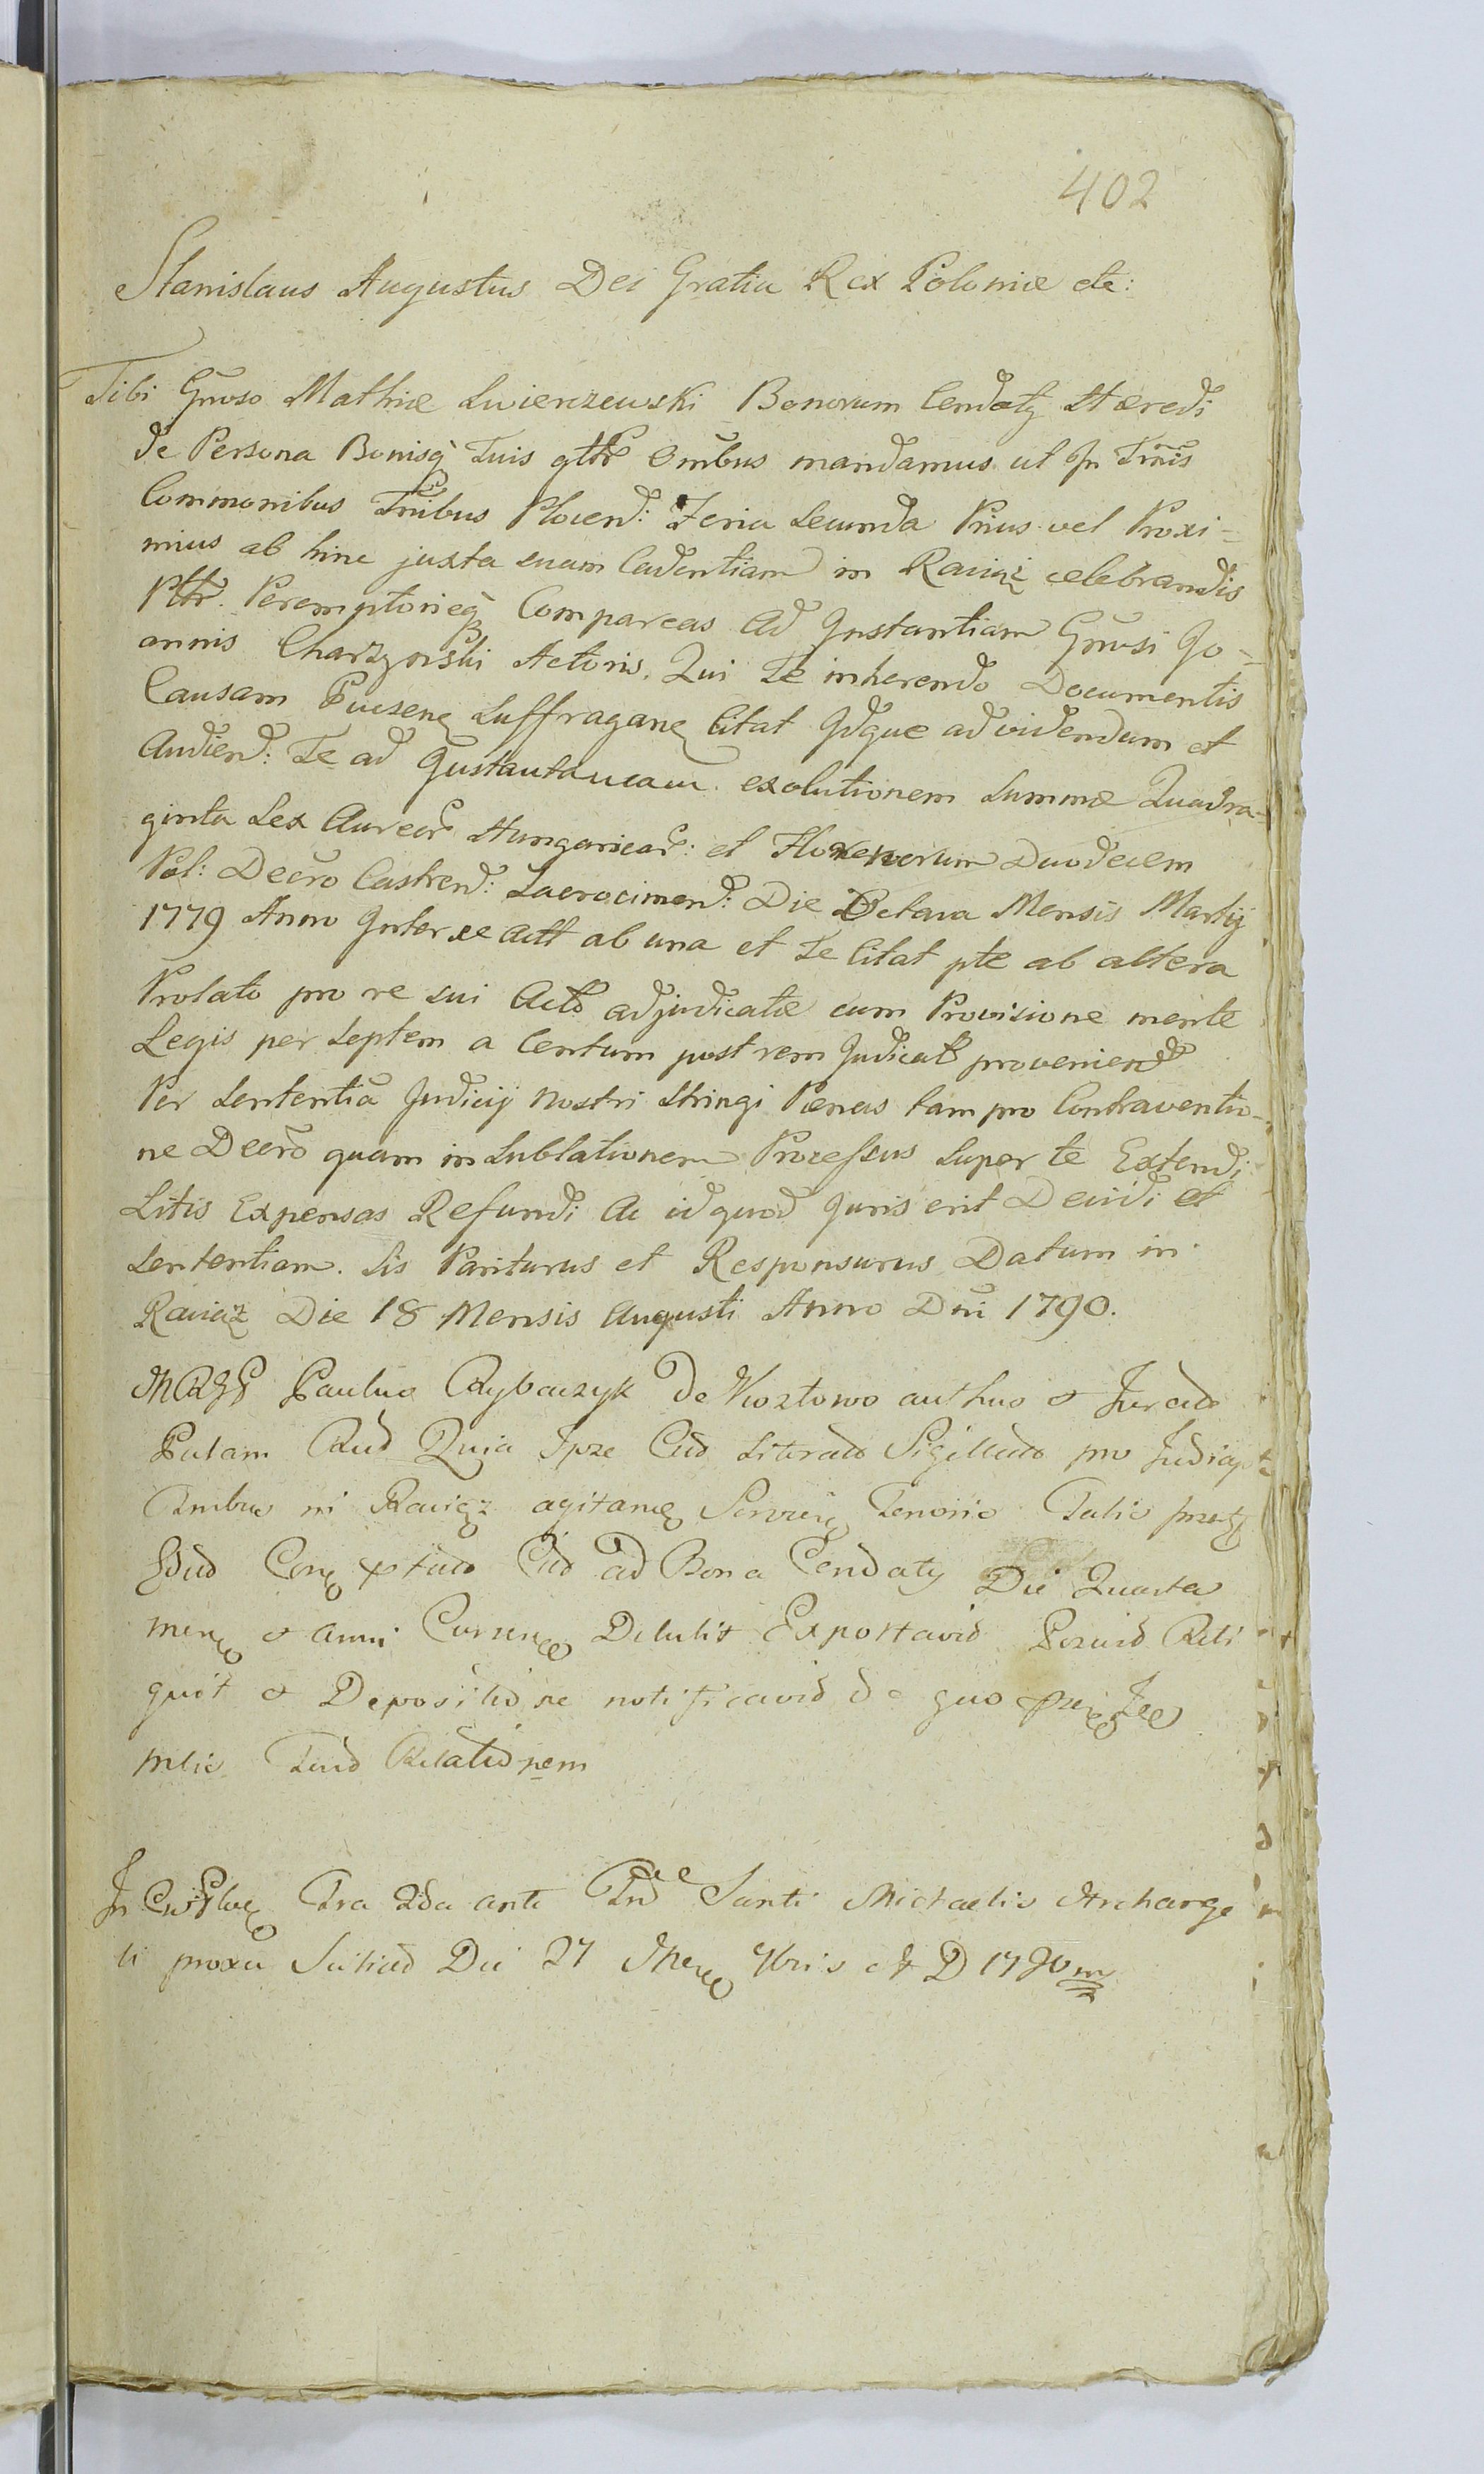 402
Stanislaus Augustus Dei Gratia Rex Poloniæ etc:
Tibi Gnoso Mathiæ Swierzewski Bonorum Cendaty Hæredi
de Persona Bonisq Tuis gttr Omibus mandamus ut In Trnis
Commonibus Trnibus Plocen: Feria Secunda Prius vel Proxi-
mius ab hinc juxta suam Cadentiam in Raciąż celebrandis
Pttr. Peremptorieq Compareas Ad Instantiam Gnosi Jo-
annis Charzynski Actoris, Qui Te inherendo Documentis
Causam Suffragane Citat Idque ad videndum et
Audiend: Te ad Instantaneam exolutionem Summæ Quadra-
ginta Sex Aureor Hungaricar: et Florenorum Duodecem
Pol: Decro Castren: Die Octava Mensis Martij
1779 Anno Inter se Actt ab una et Te Citat pte ab altera
Prolato pro re sui Act adjudicatæ cum Provisione mente
Legis per Septem a Centum post rem Judicat proveniend
Per Sententiã Judicij Nostri Stringi Pænas tam pro Contraventio-
ne Decro quam in Sublationem Processus Super te Extendi
Litis Expensas Refundi Ac id quod Juris erit Decidi et
Sententiam. Sis Pariturus et Responsurus Datum in
Raciąż Die 18 Mensis Augusti Anno Dni 1790.
Paulus Rybaczyk De Kozłowo authus & Jurad
Palam Quia Ipse Literad Sigillad pro
in Raciąż Tenoris Talis
ad Bona Cendaty Die Quarta
mens & anni Curren Detulit Exportavid Posuid Reli
quit & Depositione notificavid de quo
Relationem
In Fra 2da ante Santi Michaelis Archange
li proxa Die 27 Mens 7bris A D 1790